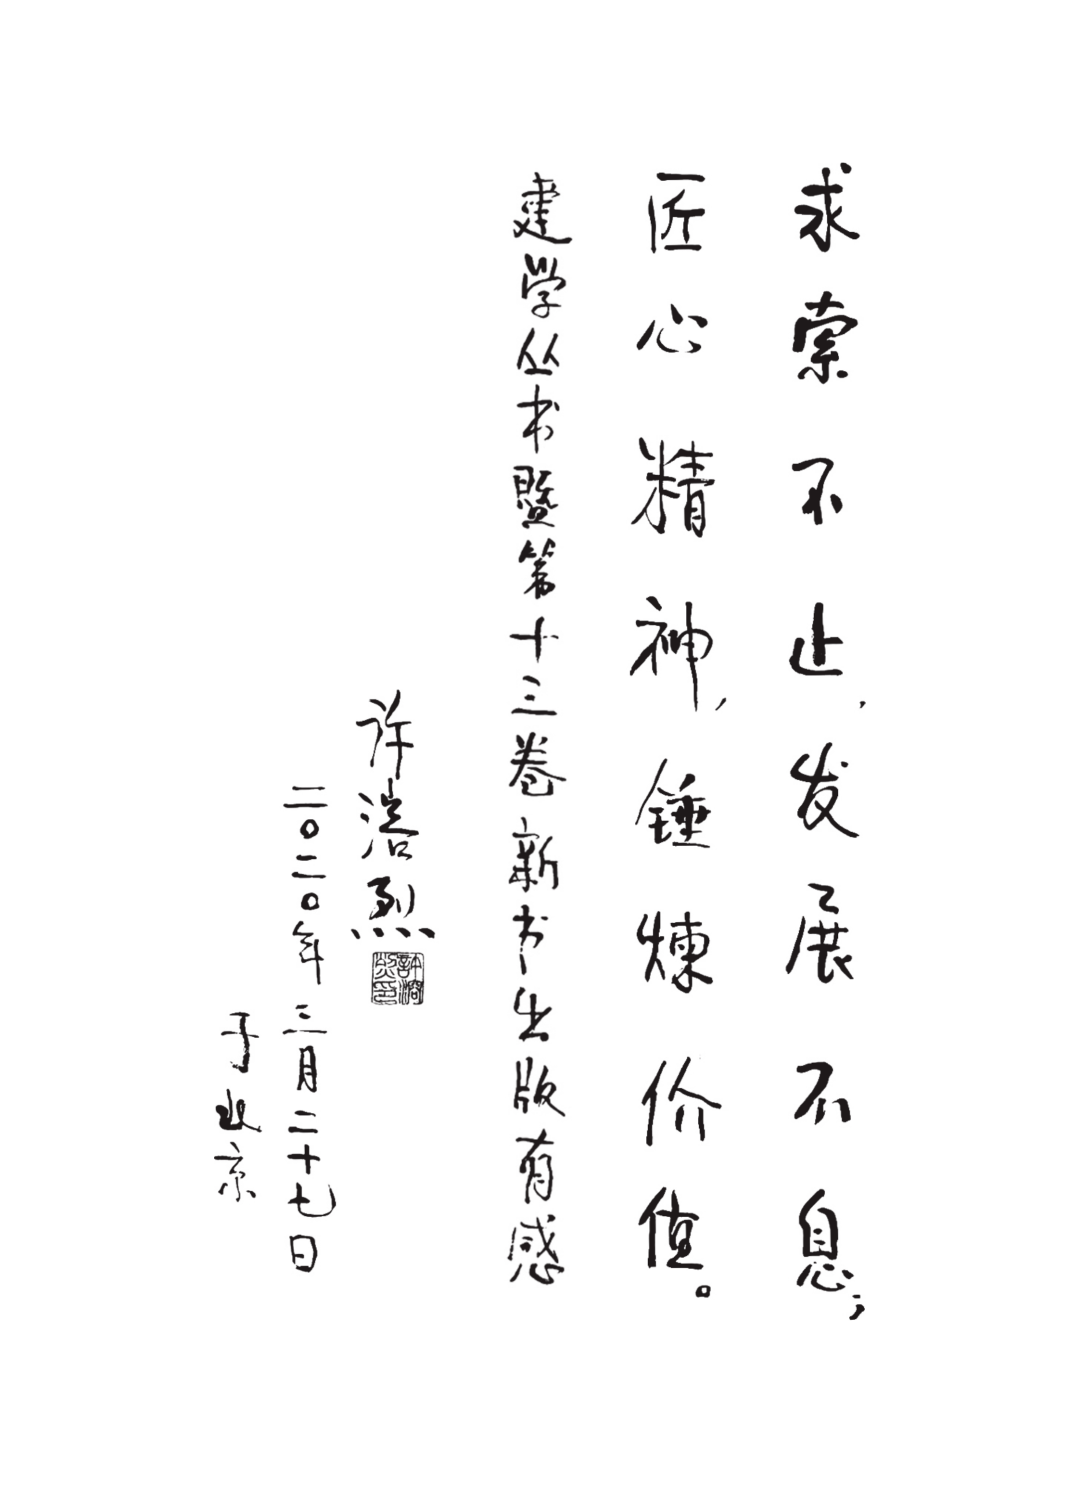 求索不止，发展不息；
匠心精神，锤炼价值。
建学丛书暨第十三卷新书出版有感
许溶烈
許溶烈印
二〇二〇年三月二十七日
于北京